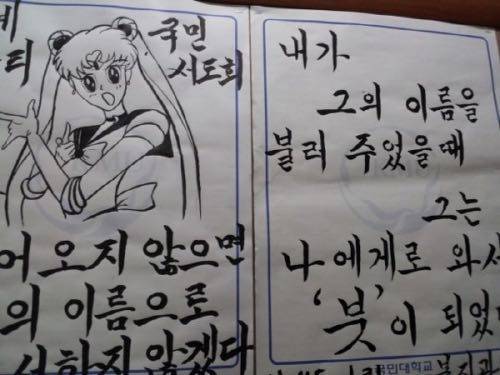 국민
시도회
어 오지 않으면
의 이름으로
서하지 않겠다
내가
그의 이름을
불러 주었을때
그는
나에게로 와서
'붓'이 되었
국민대학교